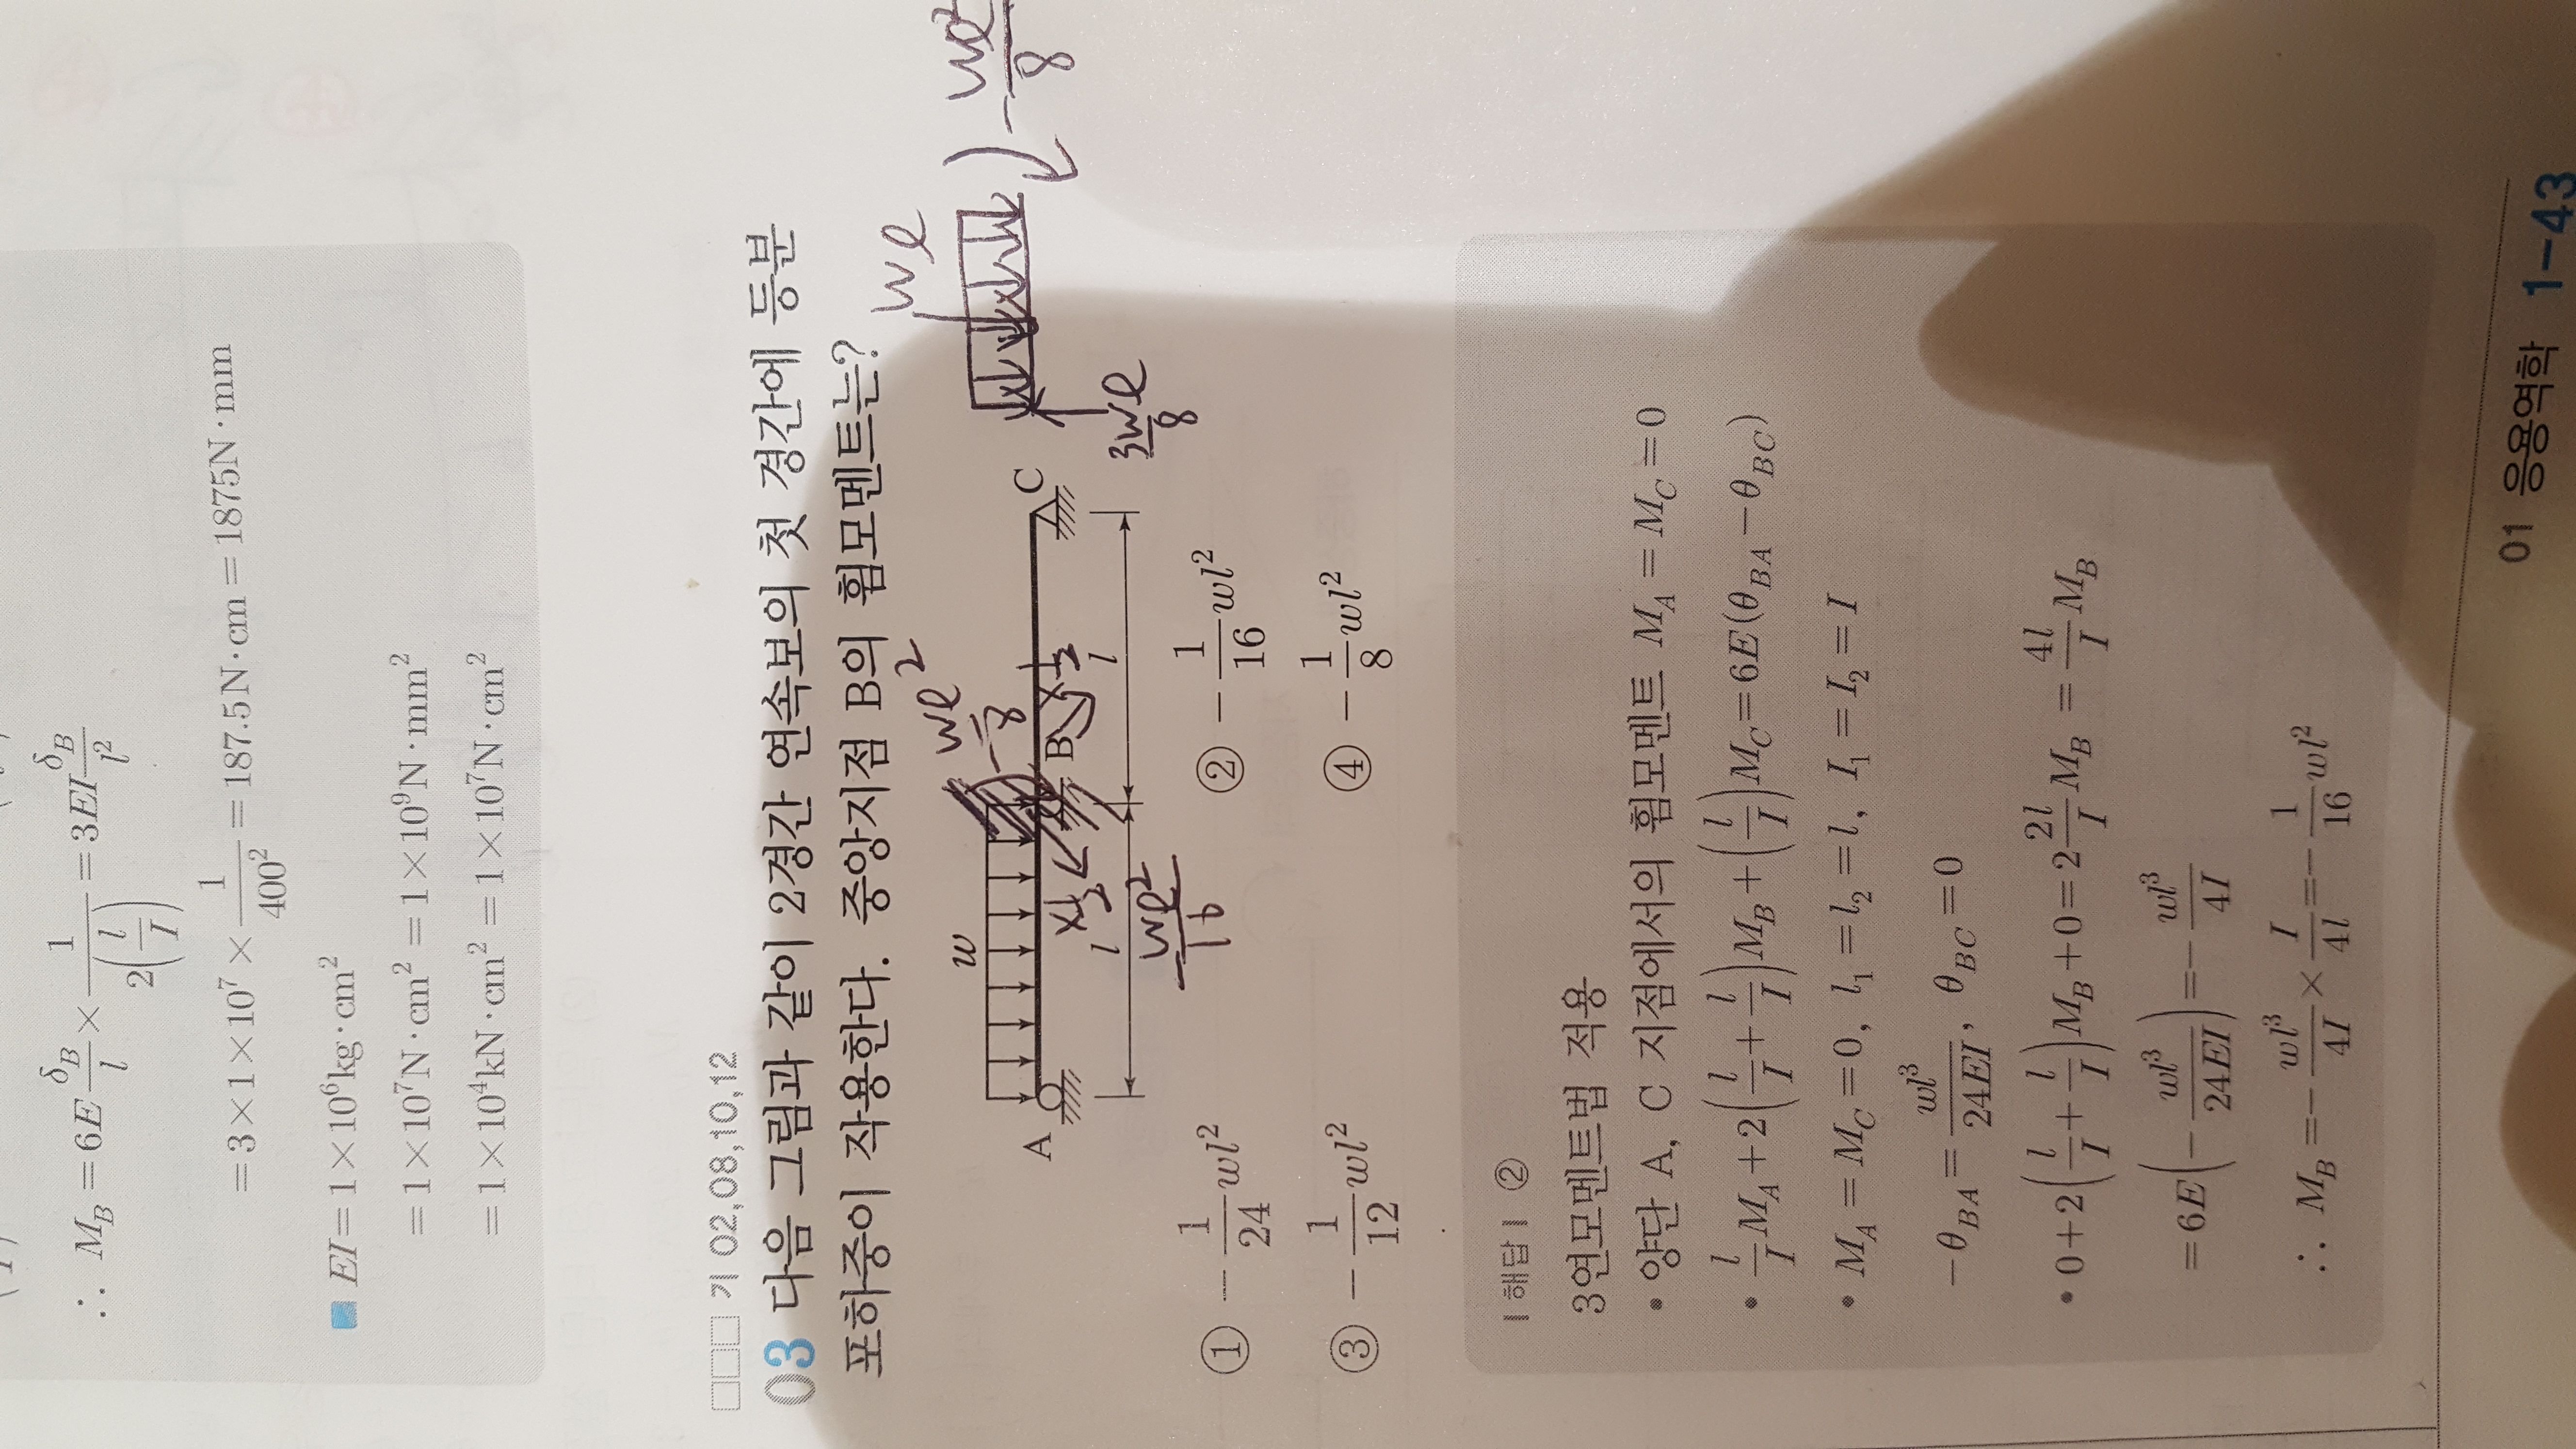 ∴ M_B = 6E δ_B/l × 1/(2(l/I)) = 3EI δ_B/l²
= 3×1×10⁷ × 1/400² = 187.5N·cm = 1875N·mm
■ EI = 1×10⁶kg·cm²
= 1×10⁷N·cm² = 1×10⁹N·mm²
= 1×10⁴kN·cm² = 1×10⁷N·cm²
□□□ 기 02,08,10,12
03 다음 그림과 같이 2경간 연속보의 첫 경간에 등분
포하중이 작용한다. 중앙지점 B의 휨모멘트는?
wl
wl²/8
w
-wl²/8
A B C
×1/2 ×1/2
3wl/8
l l
-wl²/16
① -1/24 wl² ② -1/16 wl²
③ -1/12 wl² ④ -1/8 wl²
| 해답 | ②
3연모멘트법 적용
• 양단 A, C 지점에서의 휨모멘트 M_A = M_C = 0
• l/I M_A + 2(l/I + l/I)M_B + (l/I)M_C = 6E(θ_BA − θ_BC)
• M_A = M_C = 0, l₁ = l₂ = l, I₁ = I₂ = I
−θ_BA = wl³/24EI, θ_BC = 0
• 0+2(l/I + l/I)M_B + 0 = 2 2l/I M_B = 4l/I M_B
= 6E(−wl³/24EI) = −wl³/4I
∴ M_B = −wl³/4I × I/4l = −1/16 wl²
01 응용역학 1-43